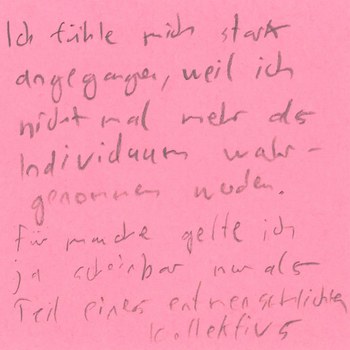 Ich fühle mich stark
angegangen, weil ich
nicht mal mehr als
Individuum wahr-
genommen werden.
Für manche gelte ich
ja scheinbar nur als
Teil eines entmenschlichten
Kollektivs